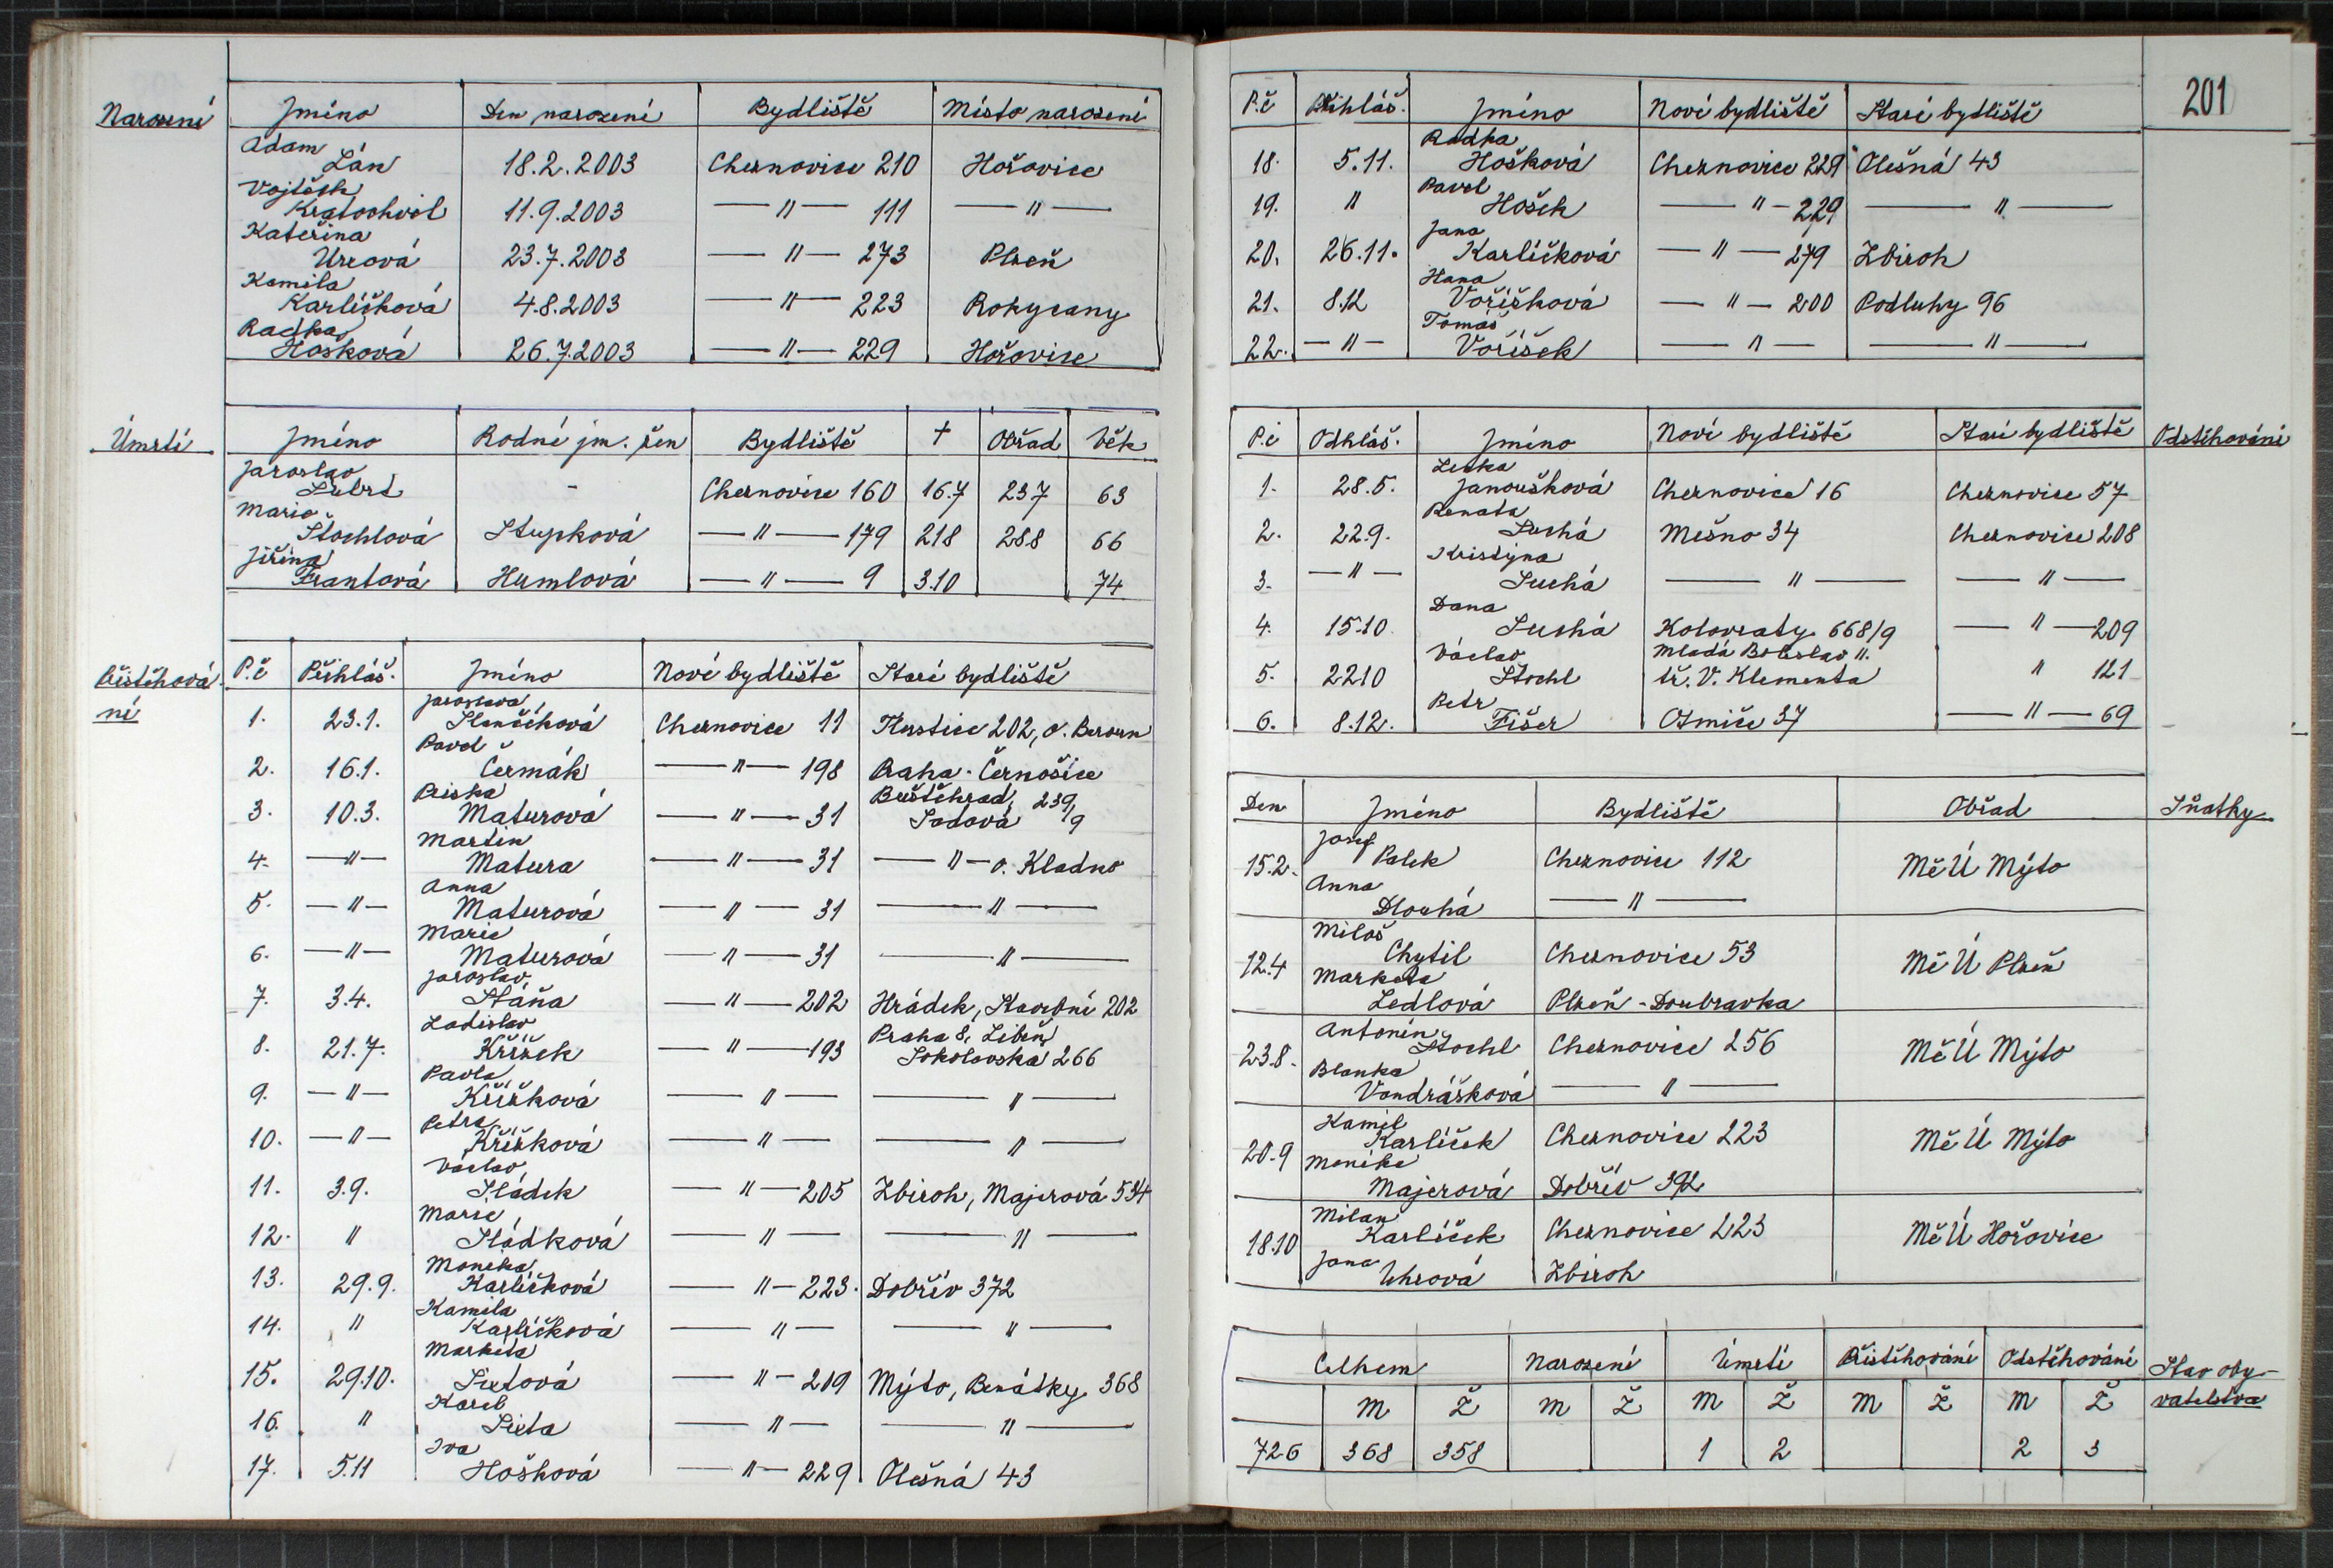 Narození
Jméno Den narození Bydliště Místo narození
Adam Lán 18.2.2003 Cheznovice 210 Hořovice
Vojtěch Kratochvíl 11.9.2003 —"— 111 —"—
Kateřina Urxová 23.7.2003 —"— 273 Plzeň
Kamila Karlíčková 4.8.2003 —"— 223 Rokycany
Radka Hošková 26.7.2003 —"— 229 Hořovice
Úmrtí
Jméno Rodné jm. žen Bydliště † Obřad Věk
Jaroslav Šubrt - Cheznovice 160 16.7 23.7 63
Marie Štochlová Stupková —"— 179 21.8 28.8 66
Jiřina Frantová Humlová —"— 9 3.10 74
Přistěhování
P.č Přihláš. Jméno Nové bydliště Staré bydliště
1. 23.1. Jaroslava Cheznovice 11 202, o. Beroun
2. 16.1. Pavel Čermák —"— 198 Praha - Černošice
3. 10.3. Priska Maturová —"— 31 Buštěhrad, Sadová 239/9
4. —"— Martin Matura —"— 31 —"— o. Kladno
5. —"— Anna Maturová —"— 31 —"—
6. —"— Marie Maturová —"— 31 —"—
7. 3.4. Jaroslav Sláňa —"— 202 Hrádek, Stavební 202
8. 21.7. Ladislav Křížek —"— 193 Praha 8, Libeň, Sokolovská 266
9. —"— Pavla Křížková —"— —"—
10. —"— Petra Křížková —"— —"—
11. 3.9. Václav Sládek —"— 205 Zbiroh, Majerová 534
12. " Marie Sládková —"— —"—
13. 29.9. Monika Karlíčková —"— 223. Dobřív 372
14. " Kamila Karlíčková —"— —"—
15. 29.10. Markéta Sixtová —"— 209 Mýto, Benátky 368
16. " Karel Sixta —"— —"—
17. 5.11 Iva Hošková —"— 229 Olešná 43
201
P.č Přihláš. Jméno Nové bydliště Staré bydliště
18. 5.11. Radka Hošková Cheznovice 229 Olešná 43
19. " Pavel Hošek —"— 229 —"—
20. 26.11. Jana Karlíčková —"— 279 Zbiroh
21. 8.12 Hana Voříšková —"— 200 Podluhy 96
22. —"— Tomáš Voříšek —"— —"—
Odstěhování
P.č Odhláš. Jméno Nové bydliště Staré bydliště
1. 28.5. Lenka Janoušková Cheznovice 16 Cheznovice 57
2. 22.9. Renata Suchá Mešno 34 Cheznovice 208
3. —"— Kristýna Suchá —"— —"—
4. 15.10 Dana Suchá Kolovraty 668/9 —"— 209
5. 22.10 Václav Štochl Mladá Boleslav II. tř. V. Klementa " 121
6. 8.12. Petr Fišer Osmiče 37 —"— 69
Sňatky
Den Jméno Bydliště Obřad
15.2. Josef Palek Cheznovice 112 MěÚ Mýto
Anna Dlouhá —"—
12.4 Miloš Chytil Cheznovice 53 MěÚ Plzeň
Markéta Ledlová Plzeň - Doubravka
23.8. Antonín Štochl Cheznovice 256 MěÚ Mýto
Blanka Vondrášková —"—
20.9 Kamil Karlíček Cheznovice 223 MěÚ Mýto
Monika Majerová Dobřív 372
18.10 Milan Karlíček Cheznovice 223 MěÚ Hořovice
Jana Uhrová Zbiroh
Stav obyvatelstva
Celkem Narození Úmrtí Přistěhování Odstěhování
M Ž M Ž M Ž M Ž M Ž
726 368 358 1 2 2 3